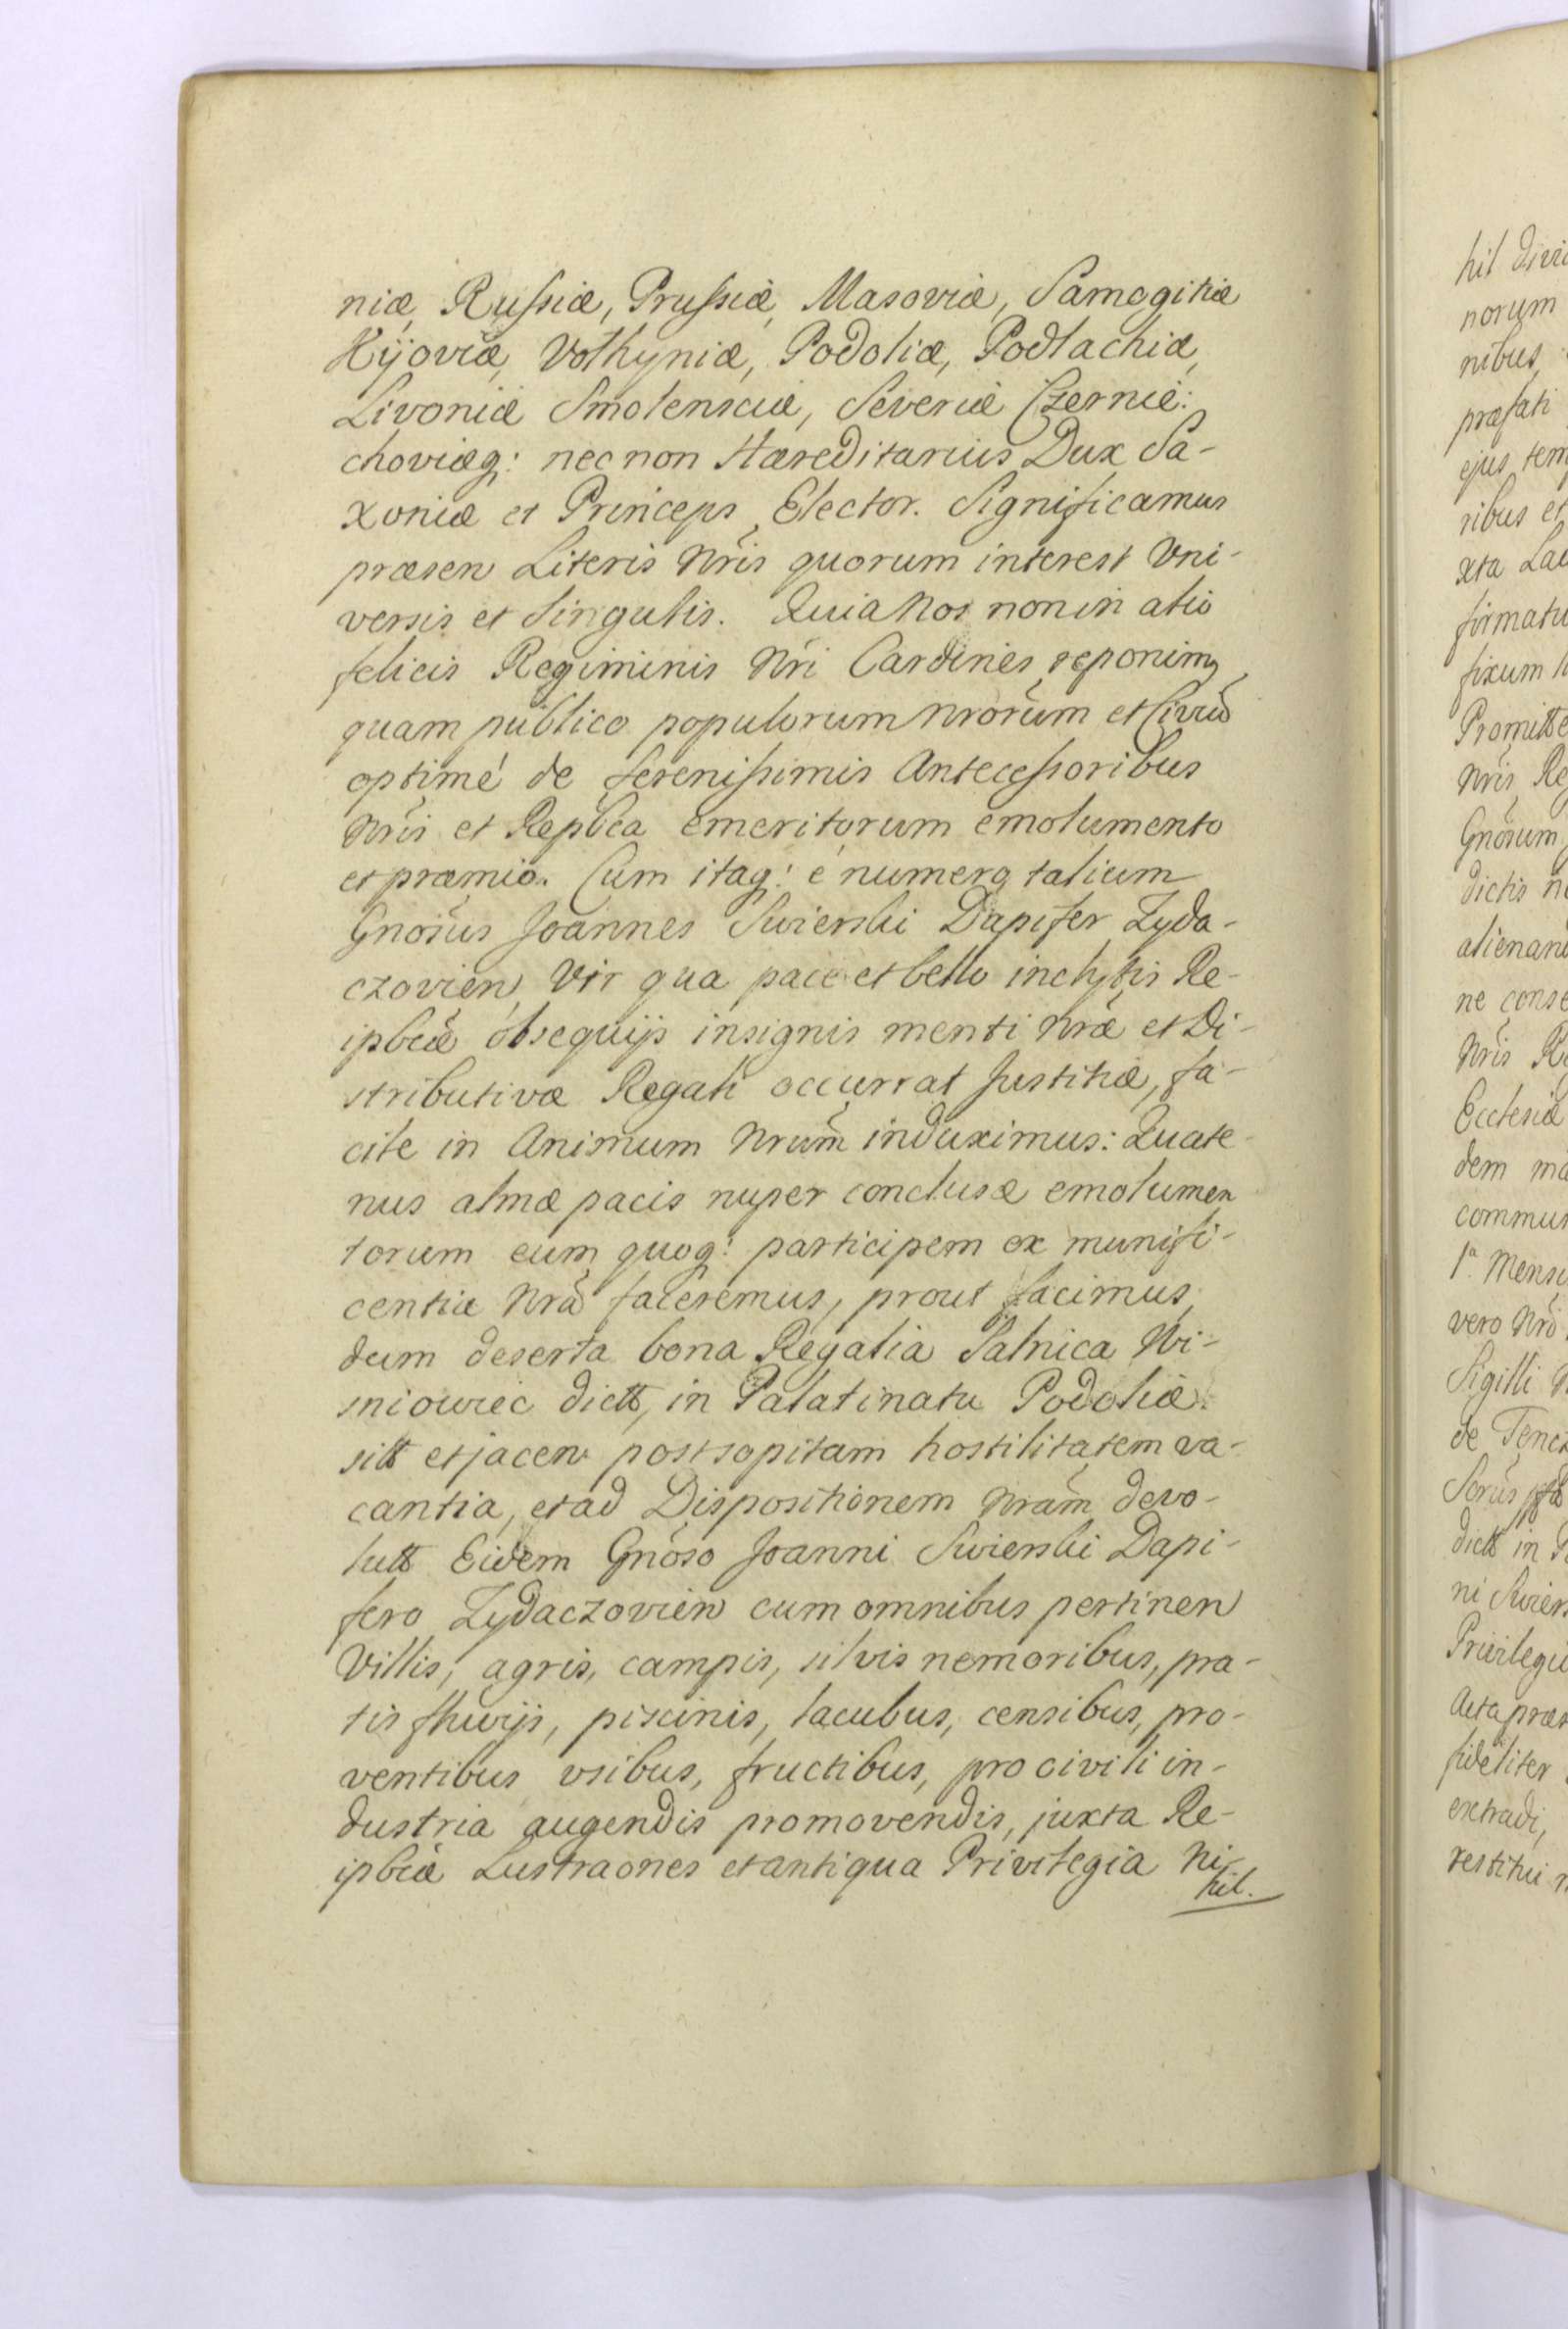 niæ, Russiæ, Prussiæ, Masoviæ, Samogitiæ
Kÿoviæ, Volhyniæ, Podoliæ, Podlachiæ,
Livoniæ Smolensciæ, Severiæ Czernie:
choviæq: nec non Hæreditarius Dux Sa-
xoniæ et Princeps Elector. Significamus
præsen Literis Nris quorum interest Vni-
versis et Singulis. Quia Nos non in alio
felicis Regiminis Nri Cardines reponimq
quam publico populorum Nrorum et Civiũ
optimé de Serenissimis Antecessoribus
Nris et Repbca emeritorum emolumento
et præmio. Cum itaq: é numero talium
Gnosus Joannes Swierski Dapifer Zyda-
czovien Vir qua pace et bello inclytis Re-
ipbcæ obsequijs insignis menti Nræ et Di-
stributivæ Regali occurrat Justitiæ, fa-
cile in Animum Nrum induximus: Quate-
nus almæ pacis nuper conclusæ emolumen
torum eum quoq: participem ex munifi-
centia Nra faceremus, prout facimus,
dum deserta bona Regalia Salnica Wi-
sniowiec dictt, in Palatinatu Podoliæ
sitt et jacen post sopitam hostilitatem va-
cantia, et ad Dispositionem Nram devo-
lutt Eidem Gnoso Joanni Swierski Dapi-
fero Zydaczovien cum omnibus pertinen
Villis, agris, campis, silvis nemoribus, pra-
tis fluvijs, piscinis, lacubus, censibus, pro-
ventibus vsibus, fructibus, pro civili in-
dustria augendis promovendis, juxta Re-
ipbcæ Lustraones et antiqua Privilegia Ni-
hil.
hil divi
norum
nibus,
præfati
ejus tem
ribus et
xta Lau
firmatu
fixum
Promitte
Nris Re
Gnosum
dictis n
alienan
ne conse
Nris R
Ecclesiæ
dem ma
commun
1ª Mens
vero Nro
Sigilli
de Tencz
dictt in P
ni Swiers
Privilegi
Acta præs
fideliter
extradi,
restitui